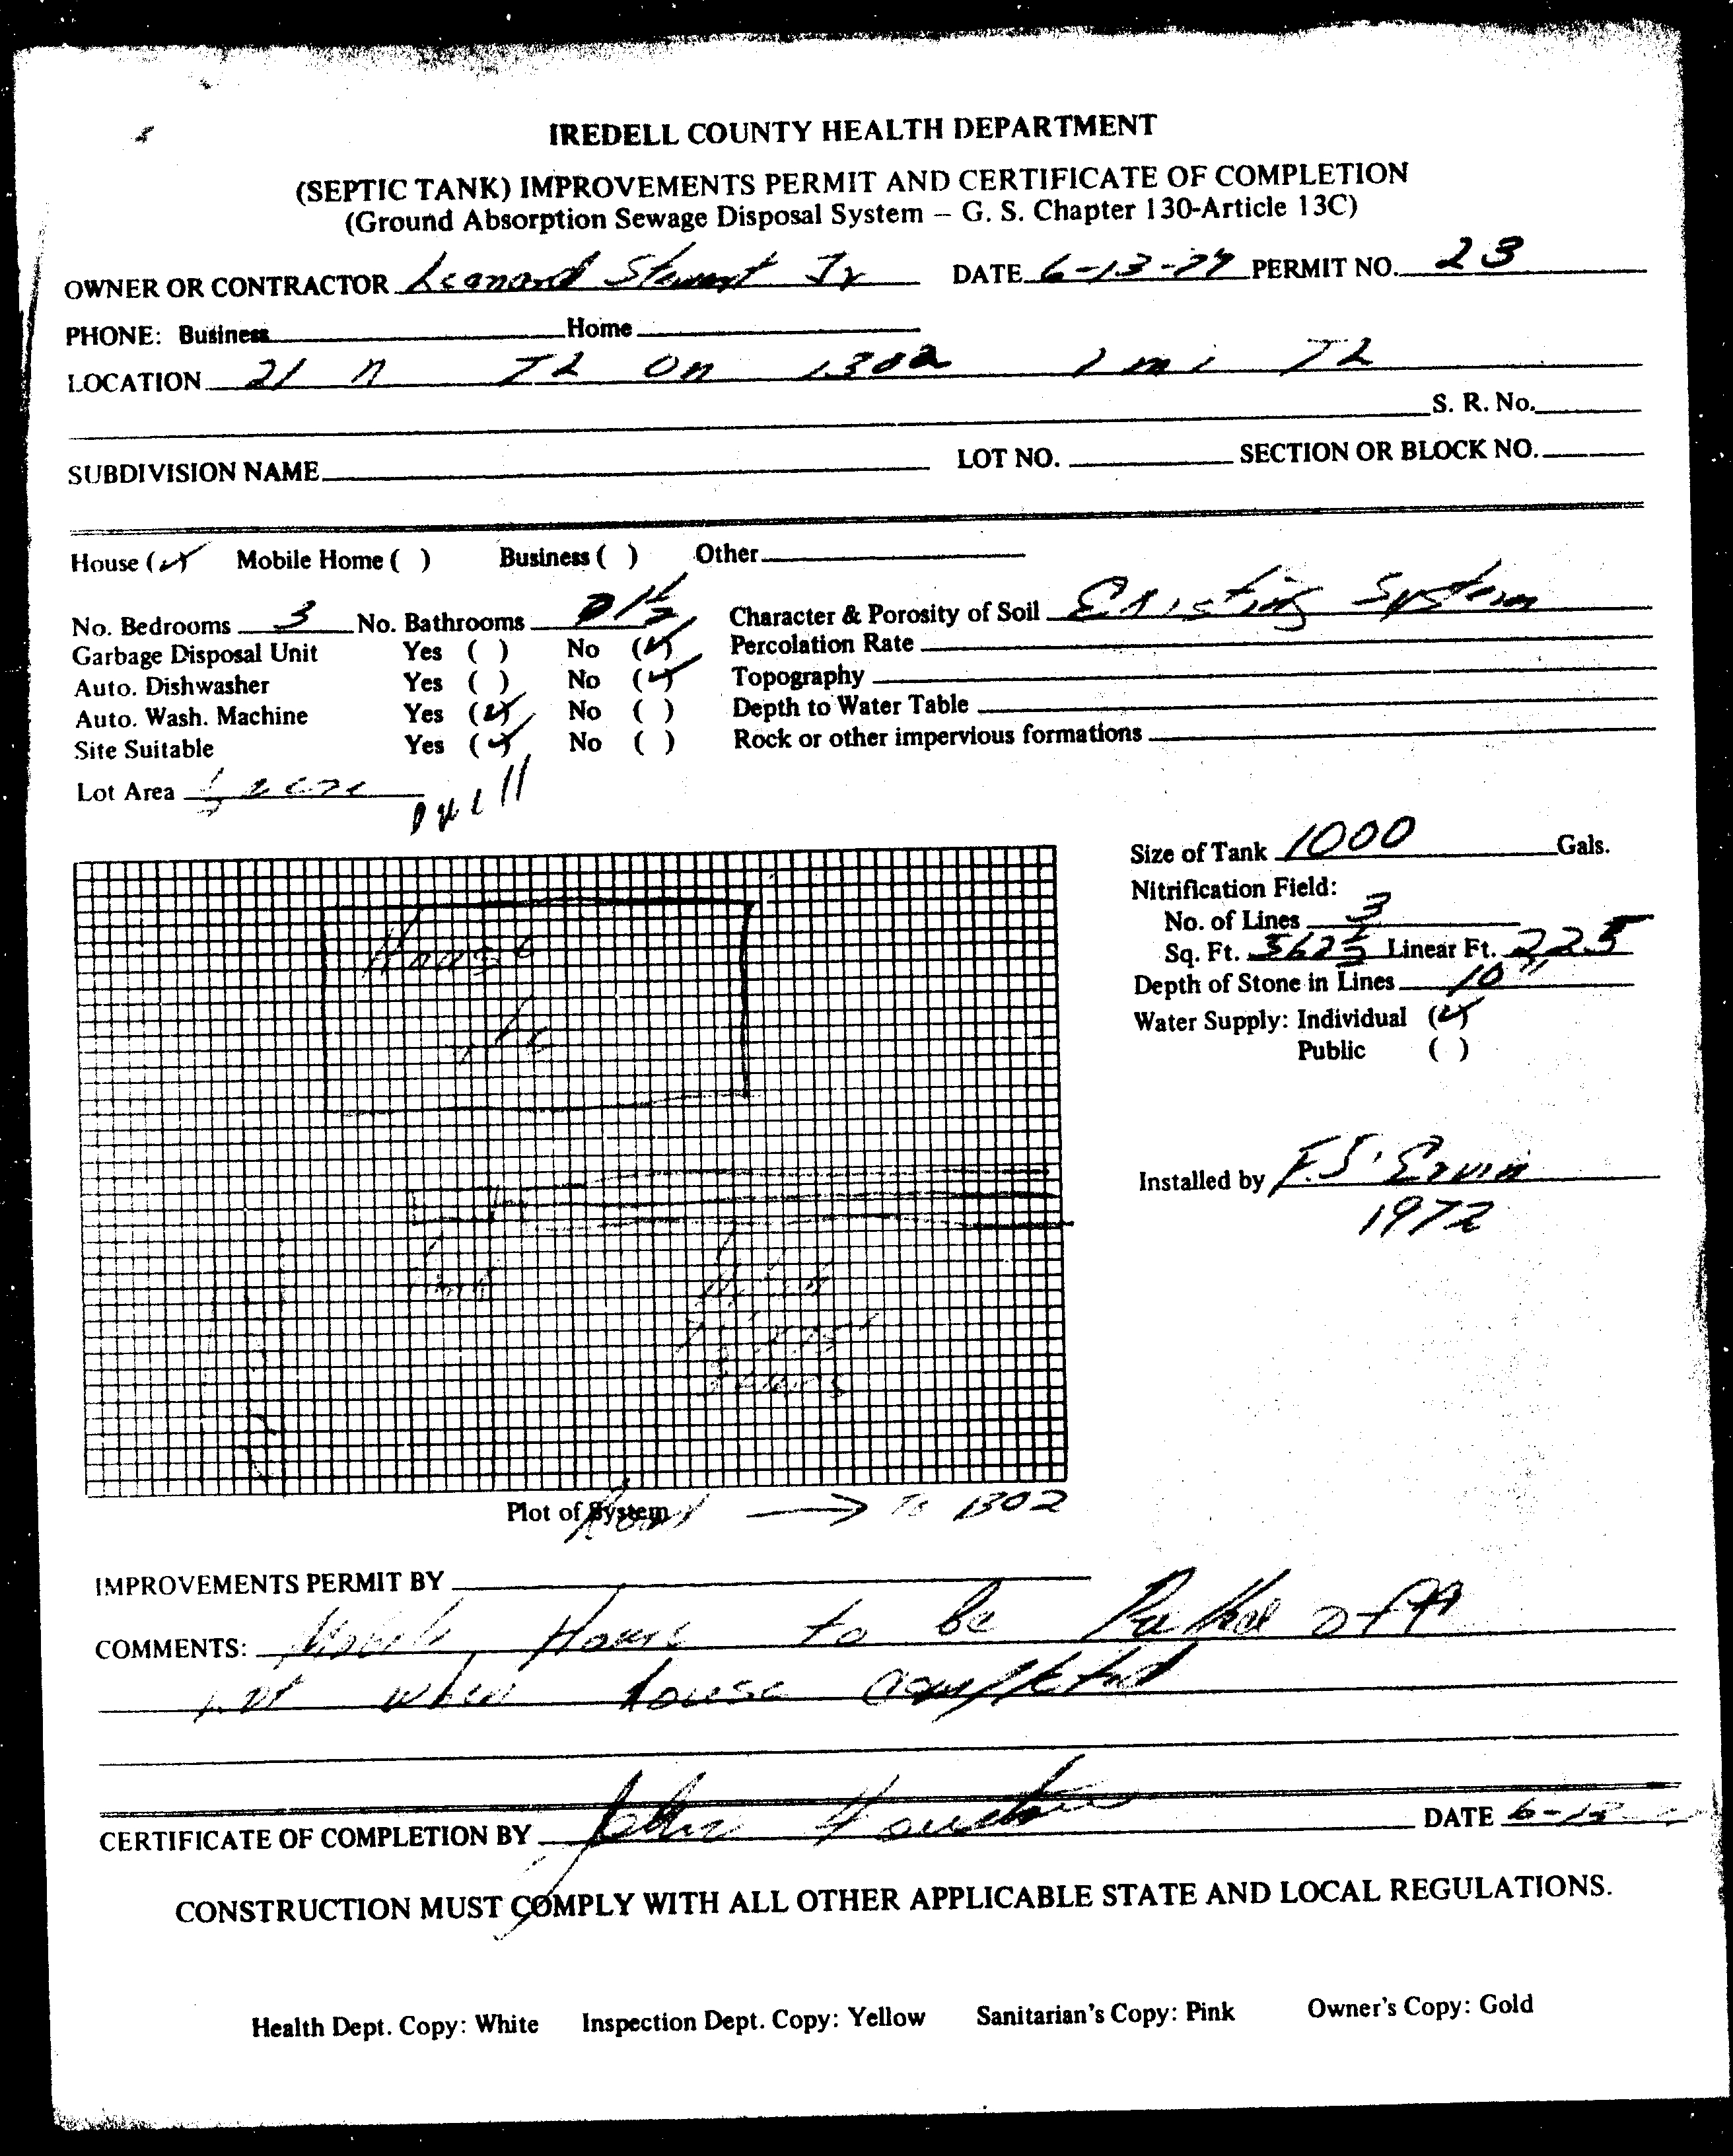 IREDELL COUNTY HEALTH DEPARTMENT
(SEPTIC TANK) IMPROVEMENTS PERMIT AND CERTIFICATE OF COMPLETION
(Ground Absorption Sewage Disposal System – G. S. Chapter 130-Article 13C)
OWNER OR CONTRACTOR Leonard Stewart Jr DATE 6-13-77 PERMIT NO. 23
PHONE: Business Home
LOCATION 21 n TL On 1302 1 mi TL
S. R. No.
SUBDIVISION NAME LOT NO. SECTION OR BLOCK NO.
House (✓) Mobile Home ( ) Business ( ) Other
No. Bedrooms 3 No. Bathrooms 1½ Character & Porosity of Soil Existing System
Garbage Disposal Unit Yes ( ) No (✓) Percolation Rate
Auto. Dishwasher Yes ( ) No (✓) Topography
Auto. Wash. Machine Yes (✓) No ( ) Depth to Water Table
Site Suitable Yes (✓) No ( ) Rock or other impervious formations
Lot Area ½ acre
Size of Tank 1000 Gals.
Nitrification Field:
No. of Lines 3
Sq. Ft. 562½ Linear Ft. 225
Depth of Stone in Lines 10"
Water Supply: Individual (✓)
Public ( )
House
Installed by F.S. Ervin
1972
Plot of System Road → To 1302
IMPROVEMENTS PERMIT BY
COMMENTS: Mobile Home to be Pulled off
Lot when house completed
CERTIFICATE OF COMPLETION BY John DATE 6-13
CONSTRUCTION MUST COMPLY WITH ALL OTHER APPLICABLE STATE AND LOCAL REGULATIONS.
Health Dept. Copy: White Inspection Dept. Copy: Yellow Sanitarian's Copy: Pink Owner's Copy: Gold